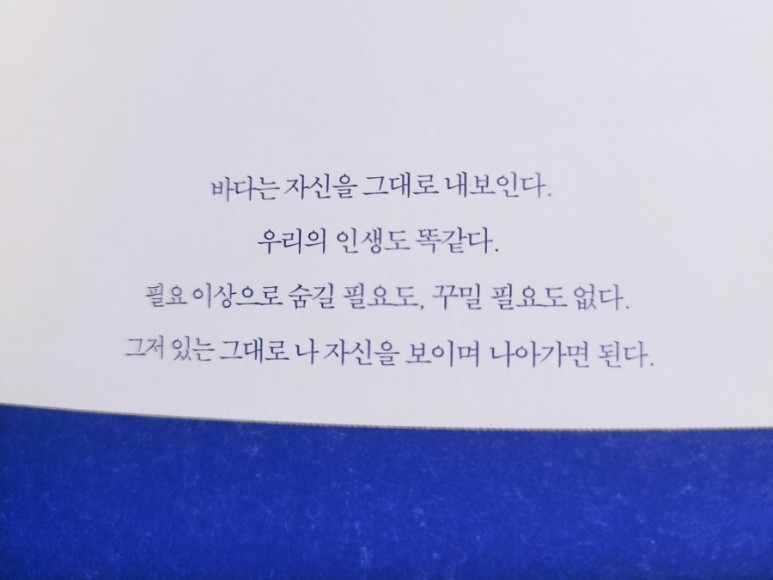 바다는 자신을 그대로 내보인다.
우리의 인생도 똑같다.
필요 이상으로 숨길 필요도, 꾸밀 필요도 없다.
그저 있는 그대로 나 자신을 보이며 나아가면 된다.